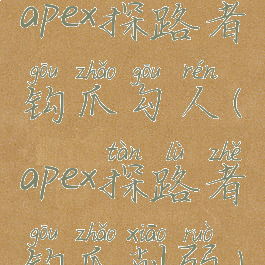 apex探路者
gōu zhǎo gōu rén
钩爪勾人(
tàn lù zhě
apex探路者
gōu zhǎo xiāo ruò
钩爪削弱)